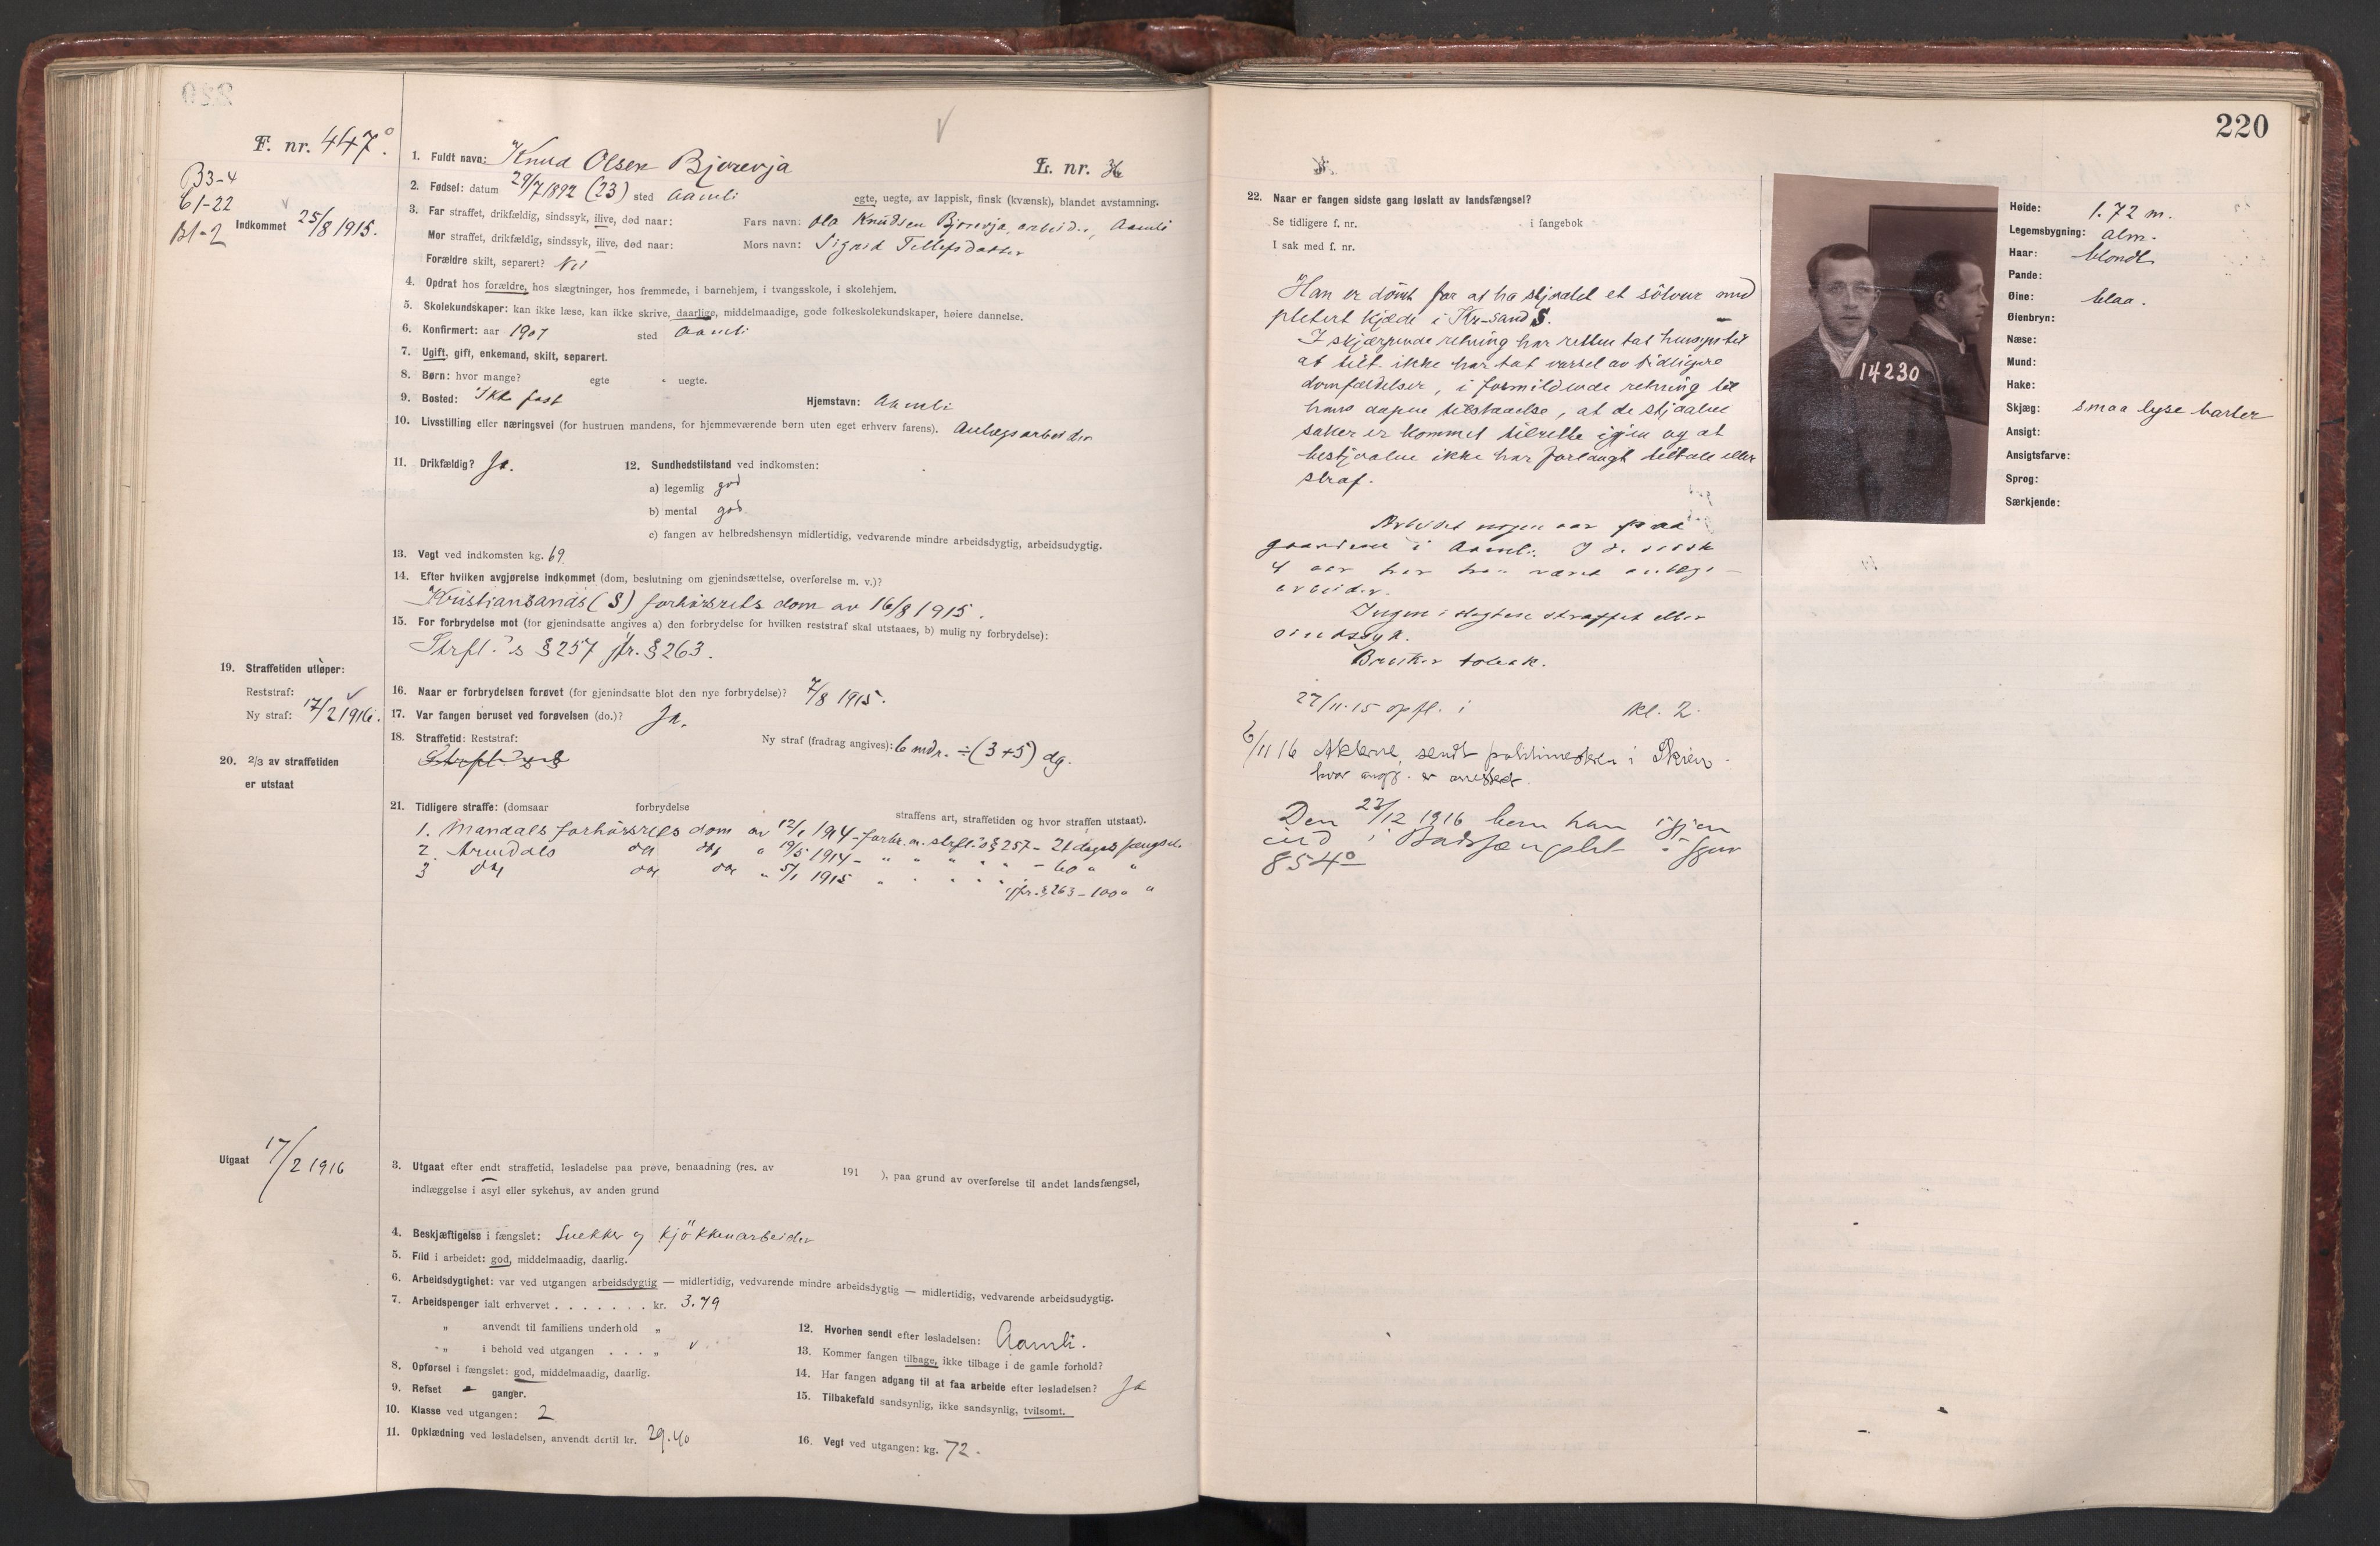 F. nr. 447°.
B3-4
61-22
B1-2
Indkommet 25/8 1915.
L. nr. 36
1. Fuldt navn: Knud Olsen Bjorevja
2. Fødsel: datum 29/7 1892 (23) sted Aamli
egte, uegte, av lappisk, finsk (kvænsk), blandet avstamning.
3. Far straffet, drikfældig, sindssyk, ilive, død naar: Fars navn: Ola Knudsen Bjorevja, arbeider, Aamli
Mor straffet, drikfældig, sindssyk, ilive, død naar: Mors navn: Sigrid Tellefsdatter
Forældre skilt, separert? Nei
4. Opdrat hos forældre, hos slægtninger, hos fremmede, i barnehjem, i tvangsskole, i skolehjem.
5. Skolekundskaper: kan ikke læse, kan ikke skrive, daarlige, middelmaadige, gode folkeskolekundskaper, høiere dannelse.
6. Konfirmert: aar 1907 sted Aamli
7. Ugift, gift, enkemand, skilt, separert.
8. Børn: hvor mange? egte uegte.
9. Bosted: Ikke fast Hjemstavn: Aamli
10. Livsstilling eller næringsvei (for hustruen mandens, for hjemmeværende børn uten eget erhverv farens). Anlægsarbeider
11. Drikfældig? Ja. 12. Sundhedstilstand ved indkomsten:
a) legemlig god
b) mental god
c) fangen av helbredshensyn midlertidig, vedvarende mindre arbeidsdygtig, arbeidsudygtig.
13. Vegt ved indkomsten kg. 69
14. Efter hvilken avgjørelse indkommet (dom, beslutning om gjenindsættelse, overførelse m. v.)?
Kristiansands (S) forhörsrets dom av 16/8 1915.
15. For forbrydelse mot (for gjenindsatte angives a) den forbrydelse for hvilken reststraf skal utstaaes, b) mulig ny forbrydelse):
Strfl.'s § 257 jfr. § 263.
19. Straffetiden utløper:
Reststraf:
Ny straf: 17/2 1916.
16. Naar er forbrydelsen forøvet (for gjenindsatte blot den nye forbrydelse)? 7/8 1915.
17. Var fangen beruset ved forøvelsen (do.)? Ja.
18. Straffetid: Reststraf: Ny straf (fradrag angives): 6 mdr. ÷ (3+5) dg.
20. 2/3 av straffetiden
er utstaat
21. Tidligere straffe: (domsaar forbrydelse straffens art, straffetiden og hvor straffen utstaat).
1. Mandals forhörsrets dom av 12/1 1914 - forbr. m. strfl.'s § 257 - 21 dages fængsel.
2. Arendals do do " 19/5 1914 - " " " " " - 60 " "
3 do do do " 5/1 1915 " " " " " jfr. § 263 - 100 " "
Utgaat 17/2 1916
3. Utgaat efter endt straffetid, løsladelse paa prøve, benaadning (res. av 191 ), paa grund av overførelse til andet landsfængsel,
indlæggelse i asyl eller sykehus, av anden grund
4. Beskjæftigelse i fængslet: Snekker og kjökkenarbeider
5. Flid i arbeidet: god, middelmaadig, daarlig.
6. Arbeidsdygtighet: var ved utgangen arbeidsdygtig — midlertidig, vedvarende mindre arbeidsdygtig — midlertidig, vedvarende arbeidsudygtig.
7. Arbeidspenger ialt erhvervet . . . . . . . kr. 3.79
„ anvendt til familiens underhold „
„ i behold ved utgangen . . . „
8. Opførsel i fængslet: god, middelmaadig, daarlig.
9. Refset - ganger.
10. Klasse ved utgangen: 2
11. Opklædning ved løsladelsen, anvendt dertil kr. 29.40
12. Hvorhen sendt efter løsladelsen: Aamli.
13. Kommer fangen tilbage, ikke tilbage i de gamle forhold?
14. Har fangen adgang til at faa arbeide efter løsladelsen? Ja
15. Tilbakefald sandsynlig, ikke sandsynlig, tvilsomt.
16. Vegt ved utgangen: kg. 72.
220
22. Naar er fangen sidste gang løslatt av landsfængsel?
Se tidligere f. nr. i fangebok
I sak med f. nr.
Han er dömt for at ha stjaalet et sölvur med
pletert kjæde i Kr-sand S.
I skjærpende retning har retten tat hensyn til
at tilt. ikke har tat varsel av tidligere
domfældelser, i formildende retning til
hans aapne tilstaaelse, at de stjaalne
saker er kommet tilrette igjen og at
bestjaalne ikke har forlangt tiltale eller
straf.
Arbeidet nogen aar paa
gaardene i Aamli. I de sidste
4 aar har han været anlægs-
arbeider.
Ingen i slegten straffet eller
sindssyk.
Bruker tobak.
27/11-15 opfl. i kl. 2.
6/11 16 Akterne sendt politimesteren i Skien
hvor angj. er arrestert.
Den 23/12 1916 kom han igjen
ind i Bodsfængslet - f. gnr
854°
14230
Høide: 1.72 m.
Legemsbygning: alm.
Haar: blondt
Pande:
Øine: blaa.
Øienbryn:
Næse:
Mund:
Hake:
Skjæg: smaa lyse barter
Ansigt:
Ansigtsfarve:
Sprog:
Særkjende: